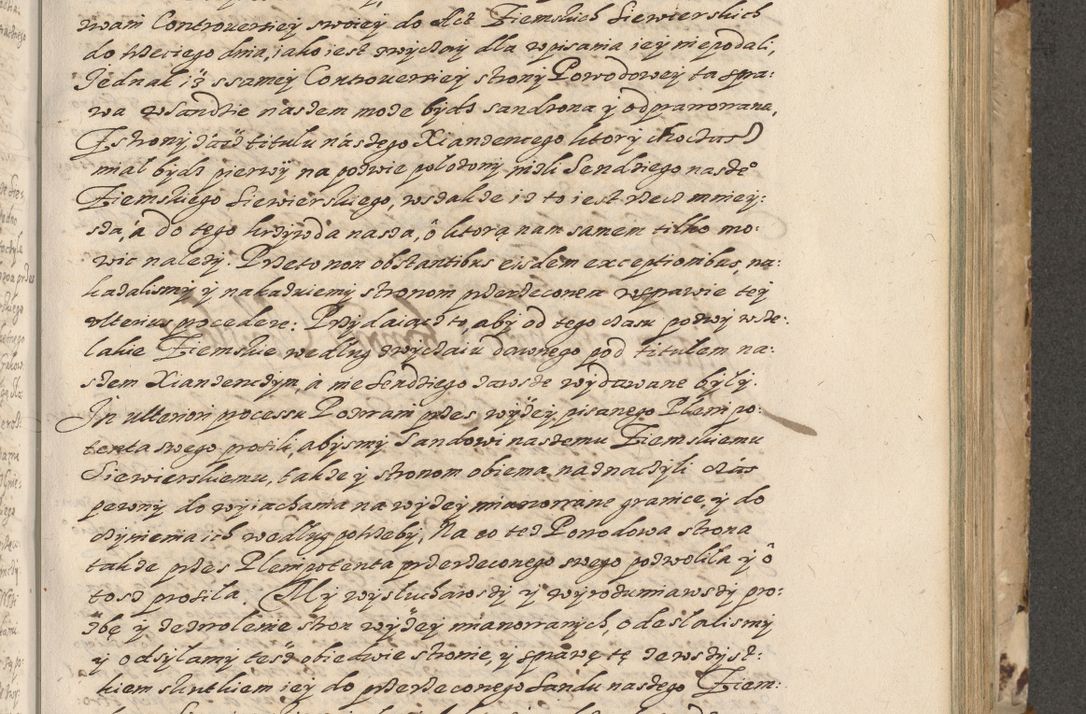 wani Controuersiey swoiey do Act Ziemskich Siewierskich
do trzeciego dnia, iako iest zwyczay dla wpisania iey niepodali,
Jednak iż z samey Controuersiey strony Powodowey ta spra:
wa w Sandzie naszem może bydz sandzona y odprawowana,
Z strony zaś titulu naszego Xiandzencego ktory chociasz
miał bydz pierwy na pozwie położony niżli Sendziego nasze°
Ziemskiego Siewierskiego, wszakże iż to iest rzecz mniey:
sza, a do tego krzywda nasza, o ktorą nam samem tilko mo:
wic należy. Przeto non obstantibus eisdem exceptionibus, na:
kazalismy y nakazuiemy stronom przerzeconem w sprawie tey
vlterius procedere: Przydaiącz to, aby od tego czasu pozwy wsze:
lakie Ziemskie według zwyczaiu dawnego pod titulem na:
szem Xiandzenczym, a nie Sendziego zawsze wydawane były.
In vlteriori processu Pozwani przes wyżey pisanego Plenipo:
tenta swego prosili, abysmy Sandowi naszemu Ziemskiemu
Siewierskiemu, także y stronom obiema, naznaczyli czas
pewny do wyiachania na wyżey mianowane granice, y do
czynienia ich według potrzeby, Na co też Powodowa strona
także przes Plenipotenta przerzeconego swego pozwoliła y o
tosz prosiła. My wysłuchawszy y wyrozumiawszy pro:
zbę y zezwolenie stron wyżey mianowanych, odesłalismy
y odsyłamy tesz obiedwie stronie, y sprawę tę ze wszyst:
kiem skutkiem iey do przerzeconego Sandu naszego Ziem: